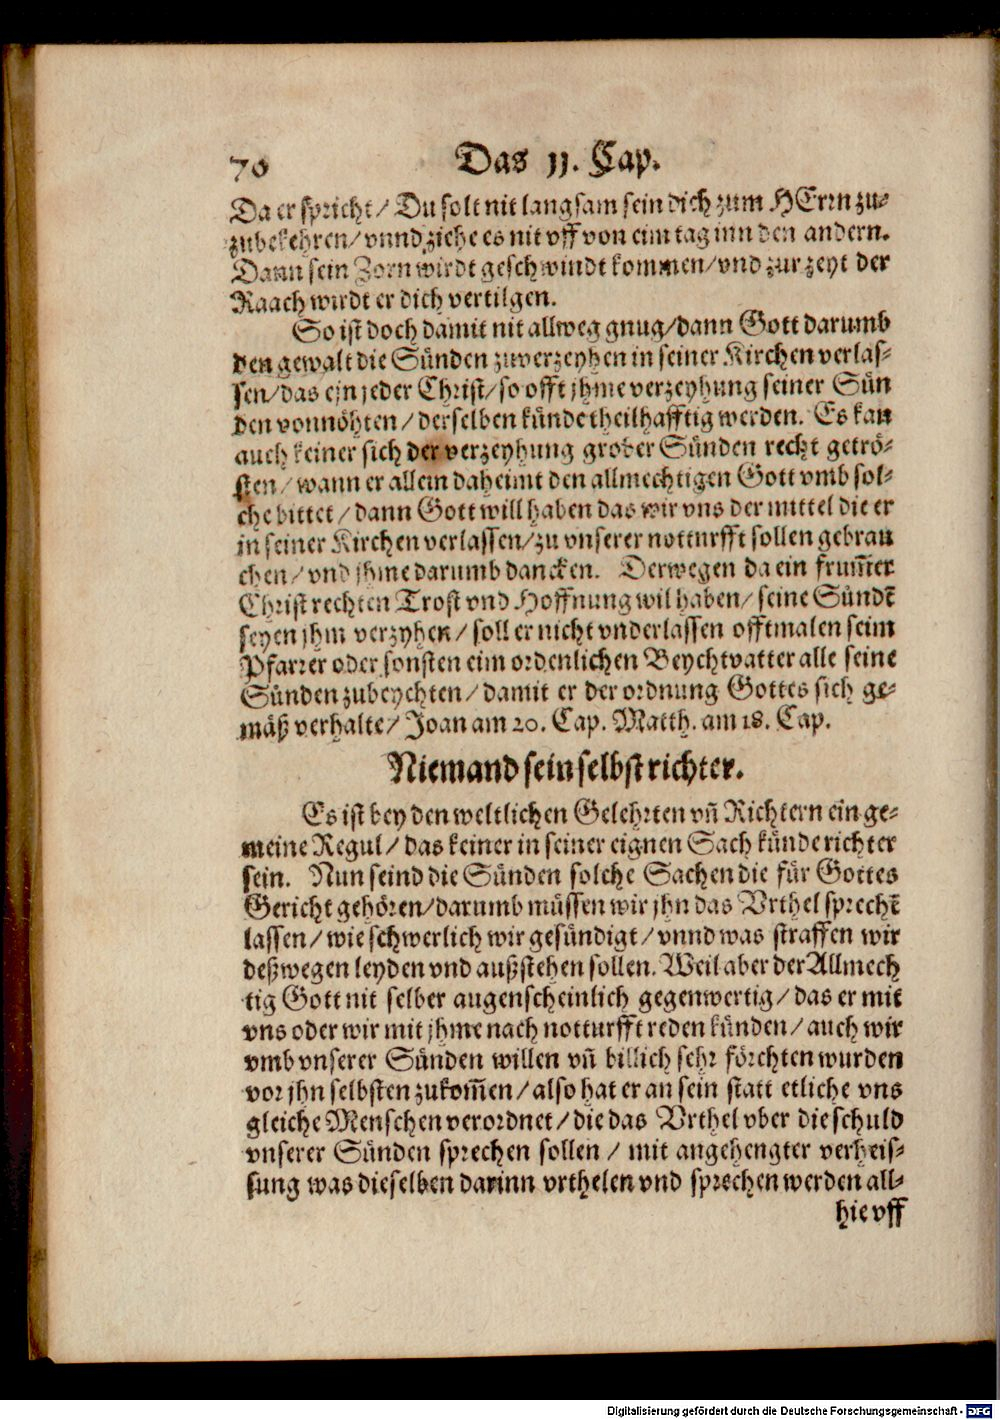 70 Das 11. Cap.
Da er spricht / Du solt nit langsam sein dich zum HErrn zu-
zubekehren / vnnd ziehe es nit vff von eim tag inn den andern.
Dann sein Zorn wirdt geschwindt kommen / vnd zur zeyt der
Raach wirdt er dich vertilgen.
So ist doch damit nit allweg gnug / dann Gott darumb
den gewalt die Sünden zuverzeyhen in seiner Kirchen verlas-
sen / das ein jeder Christ / so offt jhme verzeyhung seiner Sün
den vonnöhten / derselben künde theilhafftig werden. Es kan
auch keiner sich der verzeyhung grober Sünden recht getrö-
sten / wann er allein daheimt den allmechtigen Gott vmb sol-
che bittet / dann Gott will haben das wir vns der mittel die er
in seiner Kirchen verlassen / zu vnserer notturfft sollen gebrau
chen / vnd jhme darumb dancken. Derwegen da ein frum̄er
Christ rechten Trost vnd Hoffnung wil haben / seine Sündē
seyen jhm verzyhen / soll er nicht vnderlassen offtmalen seim
Pfarrer oder sonsten eim ordenlichen Beychtvatter alle seine
Sünden zubeychten / damit er der ordnung Gottes sich ge-
mäß verhalte / Joan am 20. Cap. Matth. am 18. Cap.
Niemand sein selbst richter.
Es ist bey den weltlichen Gelehrten vñ Richtern ein ge-
meine Regul / das keiner in seiner eignen Sach künde richter
sein. Nun seind die Sünden solche Sachen die für Gottes
Gericht gehören / darumb müssen wir jhn das Vrthel sprechē
lassen / wie schwerlich wir gesündigt / vnnd was straffen wir
deßwegen leyden vnd außstehen sollen. Weil aber der Allmech
tig Gott nit selber augenscheinlich gegenwertig / das er mit
vns oder wir mit jhme nach notturfft reden künden / auch wir
vmb vnserer Sünden willen vñ billich sehr förchten wurden
vor jhn selbsten zukom̄en / also hat er an sein statt etliche vns
gleiche Menschen verordnet / die das Vrthel vber die schuld
vnserer Sünden sprechen sollen / mit angehengter verheis-
sung was dieselben darinn vrthelen vnd sprechen werden all-
hie vff
Digitalisierung gefördert durch die Deutsche Forschungsgemeinschaft - DFG